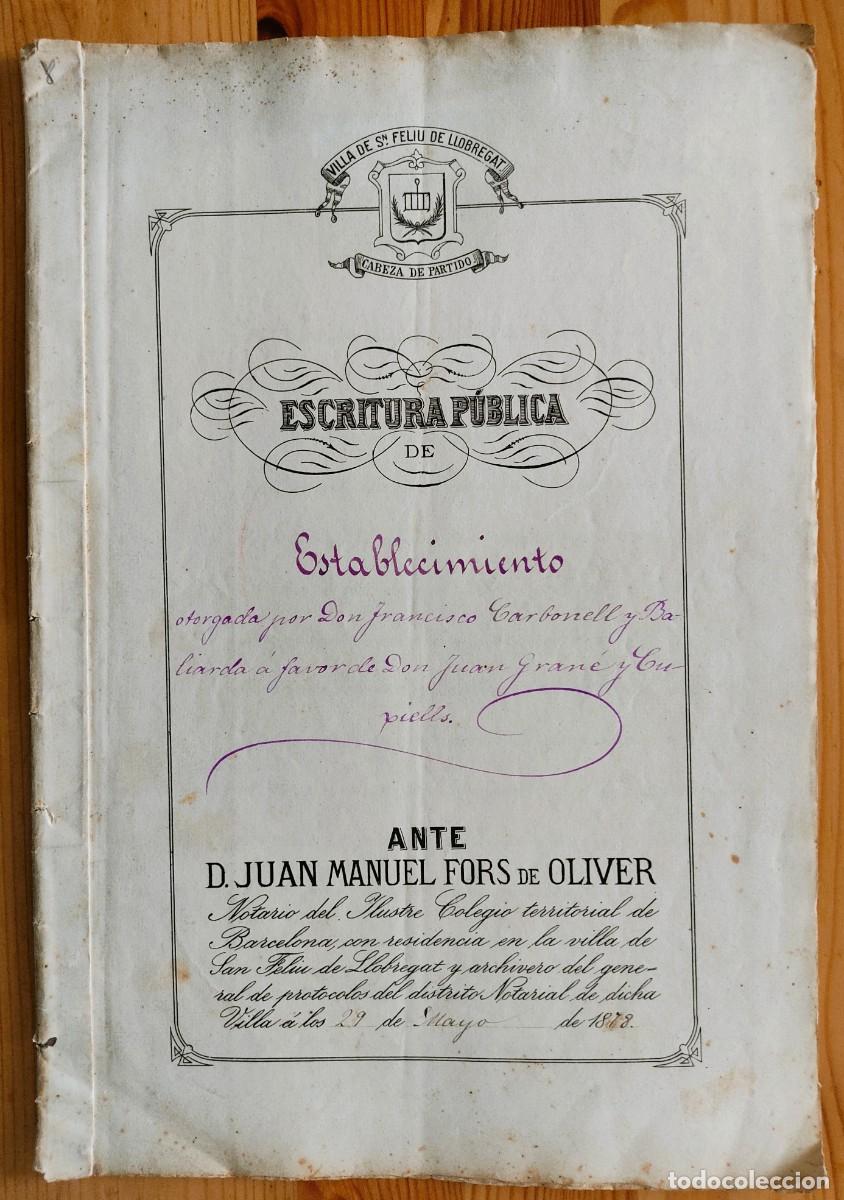 8
VILLA DE Sⁿ. FELIU DE LLOBREGAT
CABEZA DE PARTIDO
ESCRITURA PÚBLICA
DE
Establecimiento
otorgada por Don Francisco Carbonell y Ba-
liarda á favor de Don Juan Grané y Cu-
piells.
ANTE
D. JUAN MANUEL FORS DE OLIVER
Notario del Ilustre Colegio territorial de
Barcelona, con residencia en la villa de
San Feliu de Llobregat y archivero del gene-
ral de protocolos del distrito Notarial de dicha
Villa á los 29 de Mayo de 1878.
todocoleccion